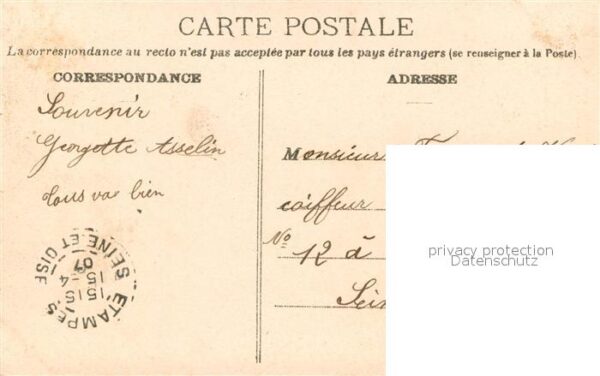 CARTE POSTALE
La correspondance au recto n'est pas acceptée par tous les pays étrangers (se renseigner à la Poste).
CORRESPONDANCE
ADRESSE
Souvenir
Georgette Asselin
tous va bien
Monsieur
coiffeur
No 12 à
Sein
ÉTAMPES
SEINE ET OISE
15 15
15 - 4
07
privacy protection
Datenschutz